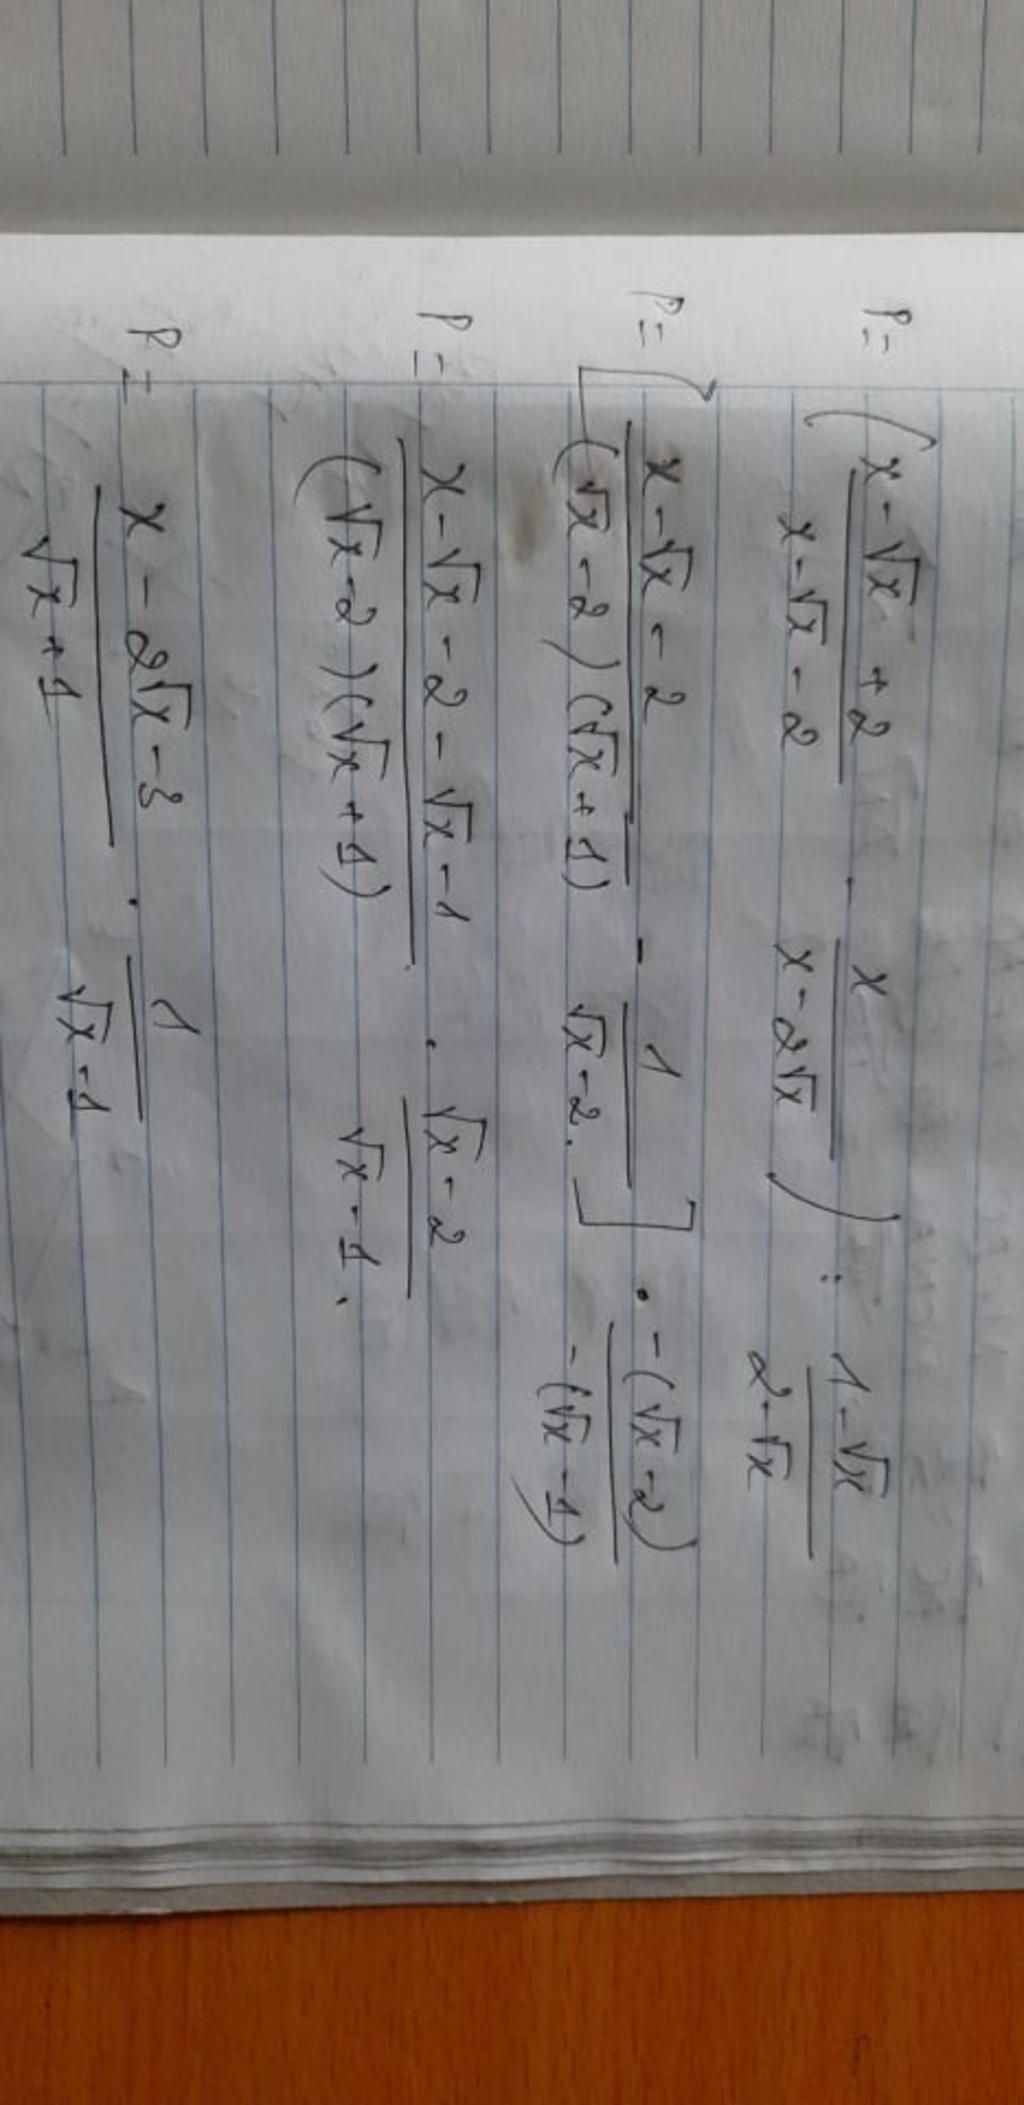 P = ( (x - √x + 2)/(x - √x - 2) - x/(x - 2√x) ) : (1 - √x)/(2 - √x)
P = [ (x - √x - 2)/((√x - 2)(√x + 1)) - 1/(√x - 2) ] . (-(√x - 2))/(-(√x - 1))
P = (x - √x - 2 - √x - 1)/((√x - 2)(√x + 1)) . (√x - 2)/(√x - 1) .
P = (x - 2√x - 3)/(√x + 1) . 1/(√x - 1)